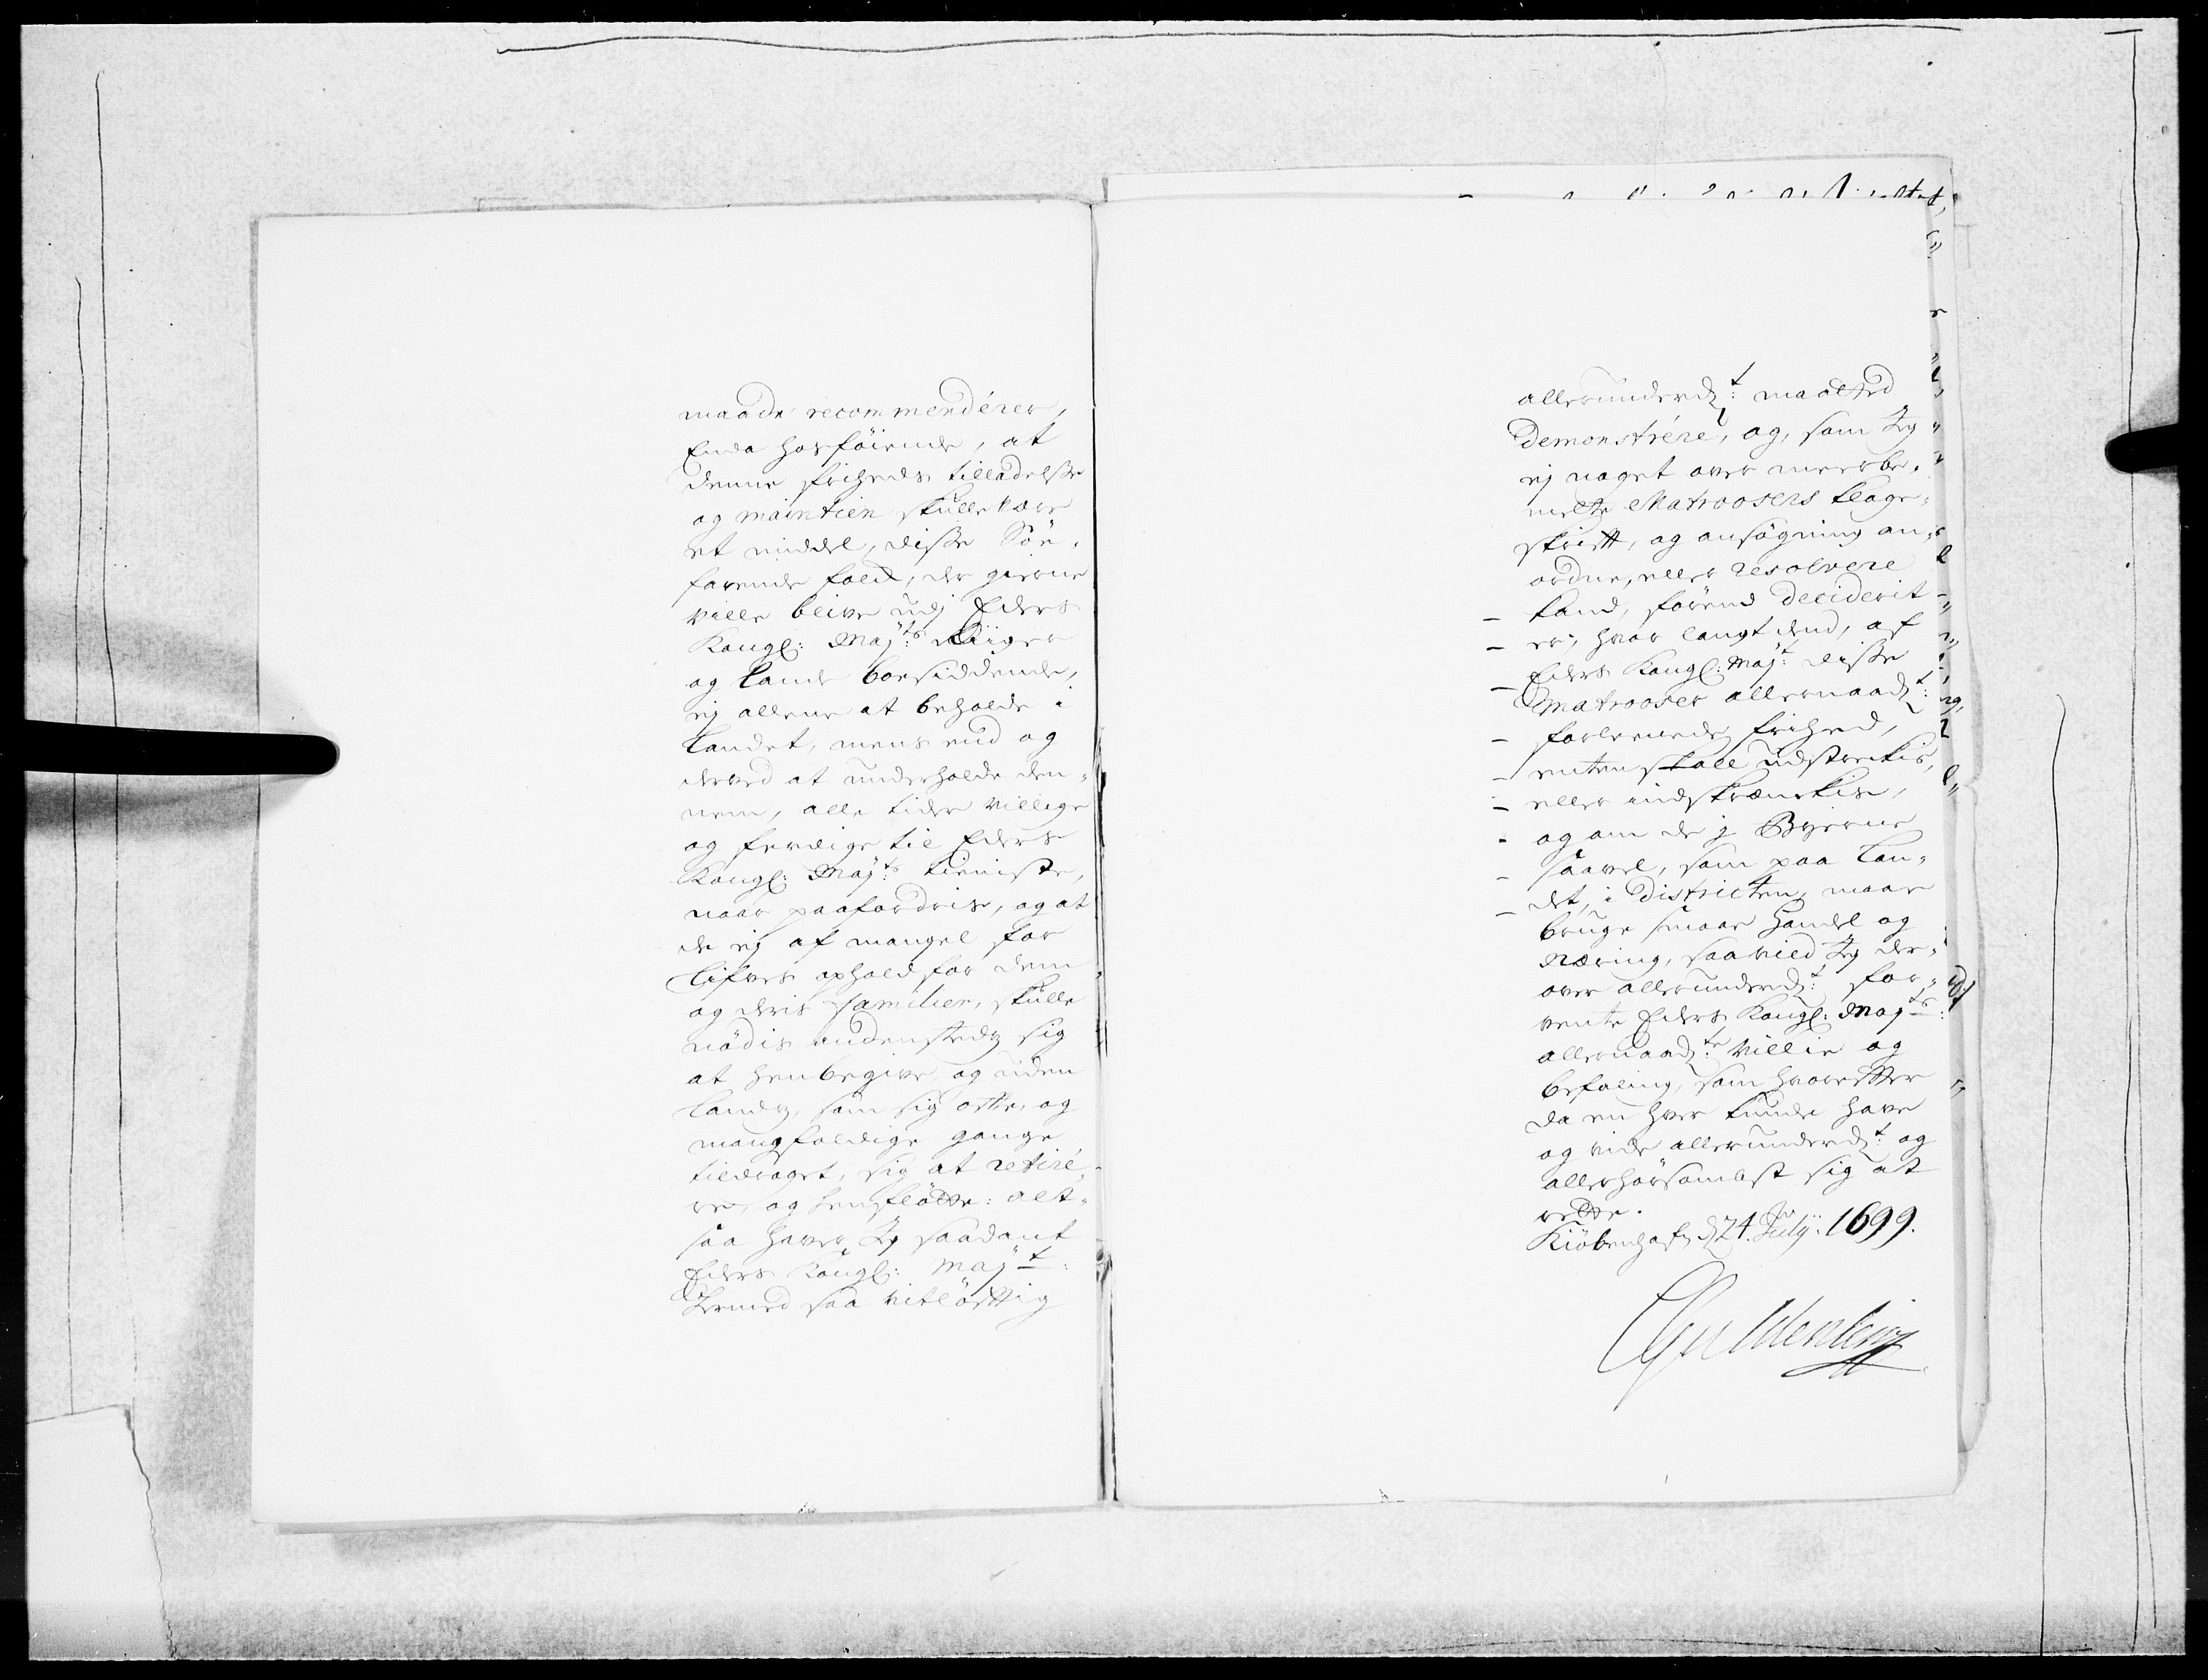 maade recommendérer,
Enda hosföiende, at
denne friheds tilladelsse
og maintien skulle være
et middel, disse Söe-
farende folck, der gierne
ville blive udj Eders
Kongl: Maj:ts Riiger
og Lande boesiddende,
ej allene at beholde i
Landet, mens end og
derved at underholde den-
nem, alle tider villige
og ferdige til Eders
Kongl: Maj:ts tieniste,
naar paafordris, og at
de ej af mangel for
Lifvs ophold for dem
og deris familier, skulle
nödis andensteds sig
at henbegive, og uden
Lands, som sig ofte, og
mangfoldige gange
tildraget, sig at retiré-
re, og henflötte: alt-
saa haver Jeg saadant
Eders Kongl: Maj:t
hermed saa vitlöfftig
allerunderd:t maatted
Demonstrére, og, som Jeg
ej noget over meerbe-
melte Matroosers klage-
skrifft, og ansögning an-
ordne, eller resolvere
kand, förend Deciderit
er, hvor langt dend, af
Eders Kongl: Maj:t disse
Matrooser allernaad:t
forleenede frihed,
enten skall udstreckis,
eller indskrænckis,
og om de j Byerne
saavel, som paa Lan-
det, i Districten, maae
bruge smaae handel og
Næring, saa vild Jeg der-
over allerunderd:t for-
vente Eders Kongl: Maj:ts
allernaad:te villie og
befaling, som hvorefter
da en hver kunde have
og vide allerunderd:t og
allerhörsombst sig at
rette.
Kiöbenhafn d 24. July: 1699.
Gyldenlöwe